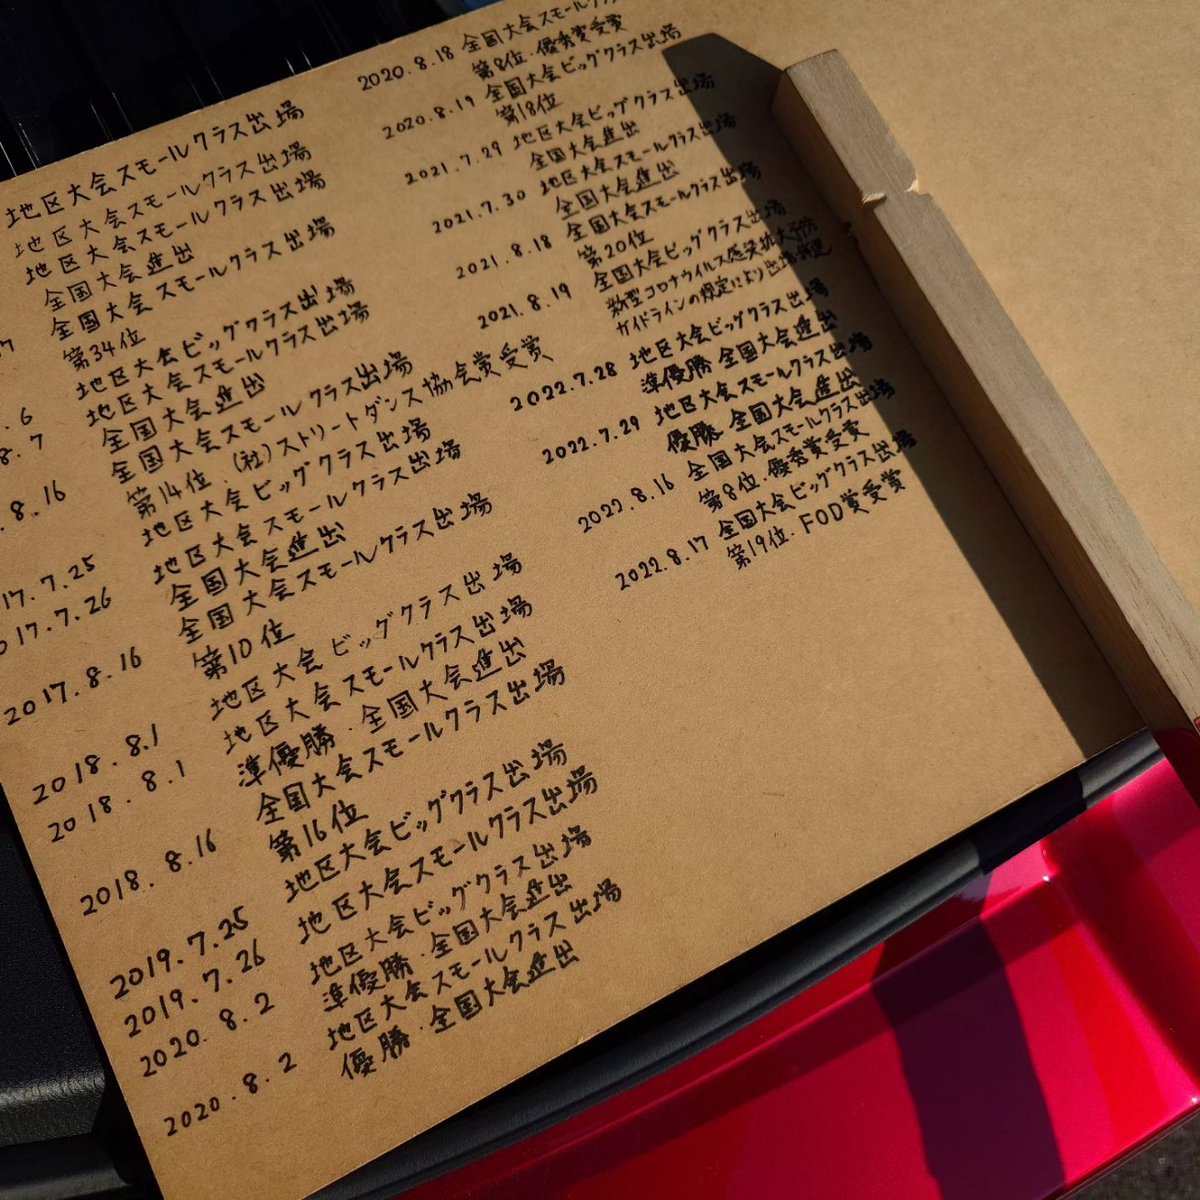 地区大会スモールクラス出場
地区大会スモールクラス出場
地区大会スモールクラス出場
全国大会進出
全国大会スモールクラス出場
第34位
地区大会ビッグクラス出場
地区大会スモールクラス出場
全国大会進出
8.16 全国大会スモールクラス出場
第14位・(社)ストリートダンス協会賞受賞
17.7.25 地区大会ビッグクラス出場
017.7.26 地区大会スモールクラス出場
全国大会進出
2017.8.16 全国大会スモールクラス出場
第10位
2018.8.1 地区大会ビッグクラス出場
2018.8.1 地区大会スモールクラス出場
準優勝・全国大会進出
2018.8.16 全国大会スモールクラス出場
第16位
2019.7.25 地区大会ビッグクラス出場
2019.7.26 地区大会スモールクラス出場
2020.8.2 地区大会ビッグクラス出場
準優勝・全国大会進出
2020.8.2 地区大会スモールクラス出場
優勝・全国大会進出
2020.8.18 全国大会スモールクラ
第8位・優秀賞受賞
2020.8.19 全国大会ビッグクラス出場
第18位
2021.7.29 地区大会ビッグクラス出場
全国大会進出
2021.7.30 地区大会スモールクラス出場
全国大会進出
2021.8.18 全国大会スモールクラス出場
第20位
2021.8.19 全国大会ビッグクラス出場
新型コロナウイルス感染拡大予防
ガイドラインの規定により出場辞退
2022.7.28 地区大会ビッグクラス出場
準優勝 全国大会進出
2022.7.29 地区大会スモールクラス出場
優勝 全国大会進出
2022.8.16 全国大会スモールクラス出場
第8位・優秀賞受賞
2022.8.17 全国大会ビッグクラス出場
第19位・FOD賞受賞